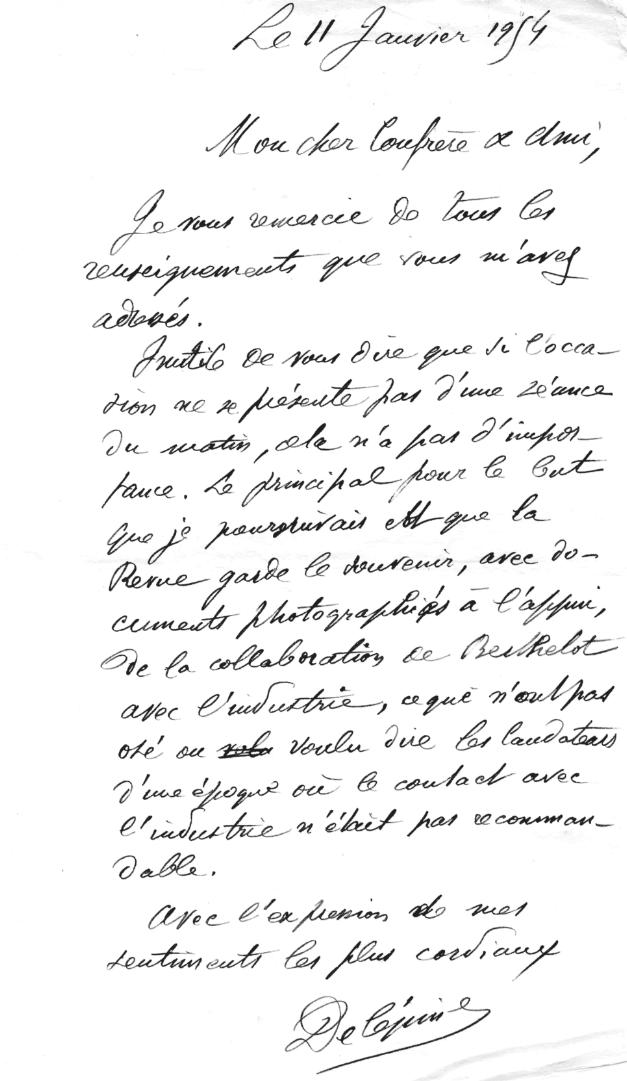 Le 11 Janvier 1954
Mon cher Confrère & Ami,
Je vous remercie de tous les
renseignements que vous m'avez
adressés.
Inutile de vous dire que si l'occa-
sion ne se présente pas d'une séance
du matin, cela n'a pas d'impor-
tance. Le principal pour le but
que je poursuivais est que la
Revue garde le souvenir, avec do-
cuments photographiés à l'appui,
de la collaboration de Berthelot
avec l'industrie, ce que n'ont pas
osé ou voulu dire les laudateurs
d'une époque où le contact avec
l'industrie n'était pas recomman-
dable.
Avec l'expression de mes
sentiments les plus cordiaux
Delépine